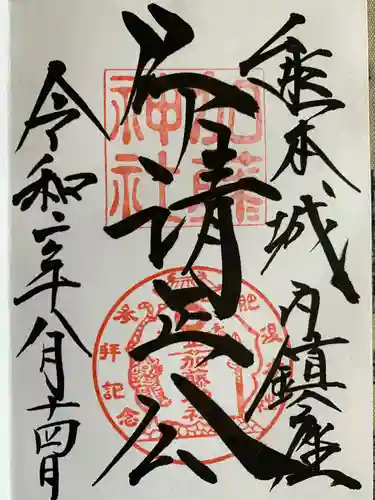 熊本城内鎮座
清正公
令和二年八月十四日
加藤
神社
肥後
参拝記念
加藤神社